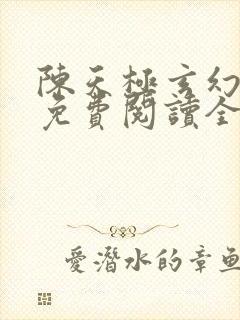 陳天極玄幻
免費閱讀全
愛潛水的章魚